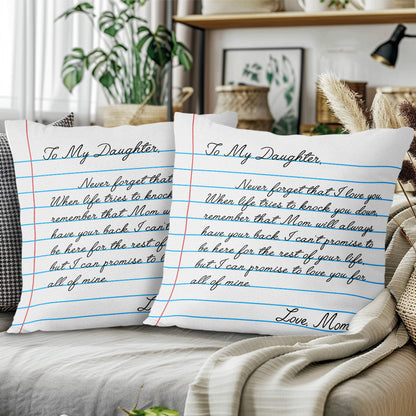 To My Daughter,
Never forget that
When life tries to knock
remember that Mom
have your back. I can't
be here for the rest of
but I can promise to
all of mine.
L
To My Daughter,
Never forget that I love you.
When life tries to knock you down,
remember that Mom will always
have your back. I can't promise to
be here for the rest of your life,
but I can promise to love you for
all of mine.
Love, Mom